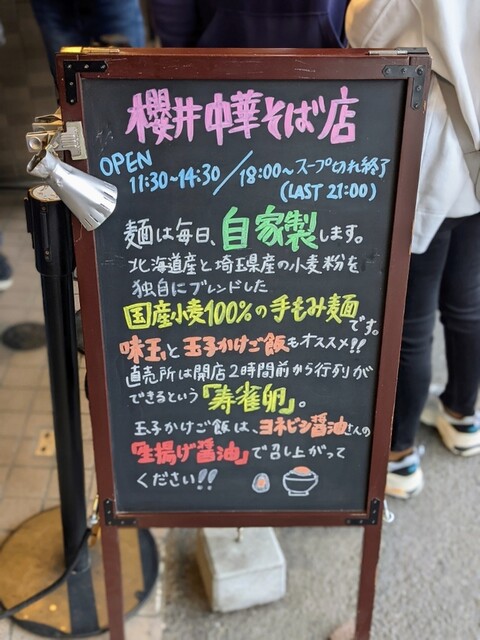 櫻井中華そば店
OPEN
11:30~14:30/18:00~スープ切れ終了
(LAST 21:00)
麺は毎日、自家製します。
北海道産と埼玉県産の小麦粉を
独自にブレンドした
国産小麦100%の手もみ麺です。
味玉と玉子かけご飯もオススメ!!
直売所は開店2時間前から行列が
できるという「寿雀卵」。
玉子かけご飯は、ヨネビシ醤油さんの
「生揚げ醤油」で召し上がって
ください!!